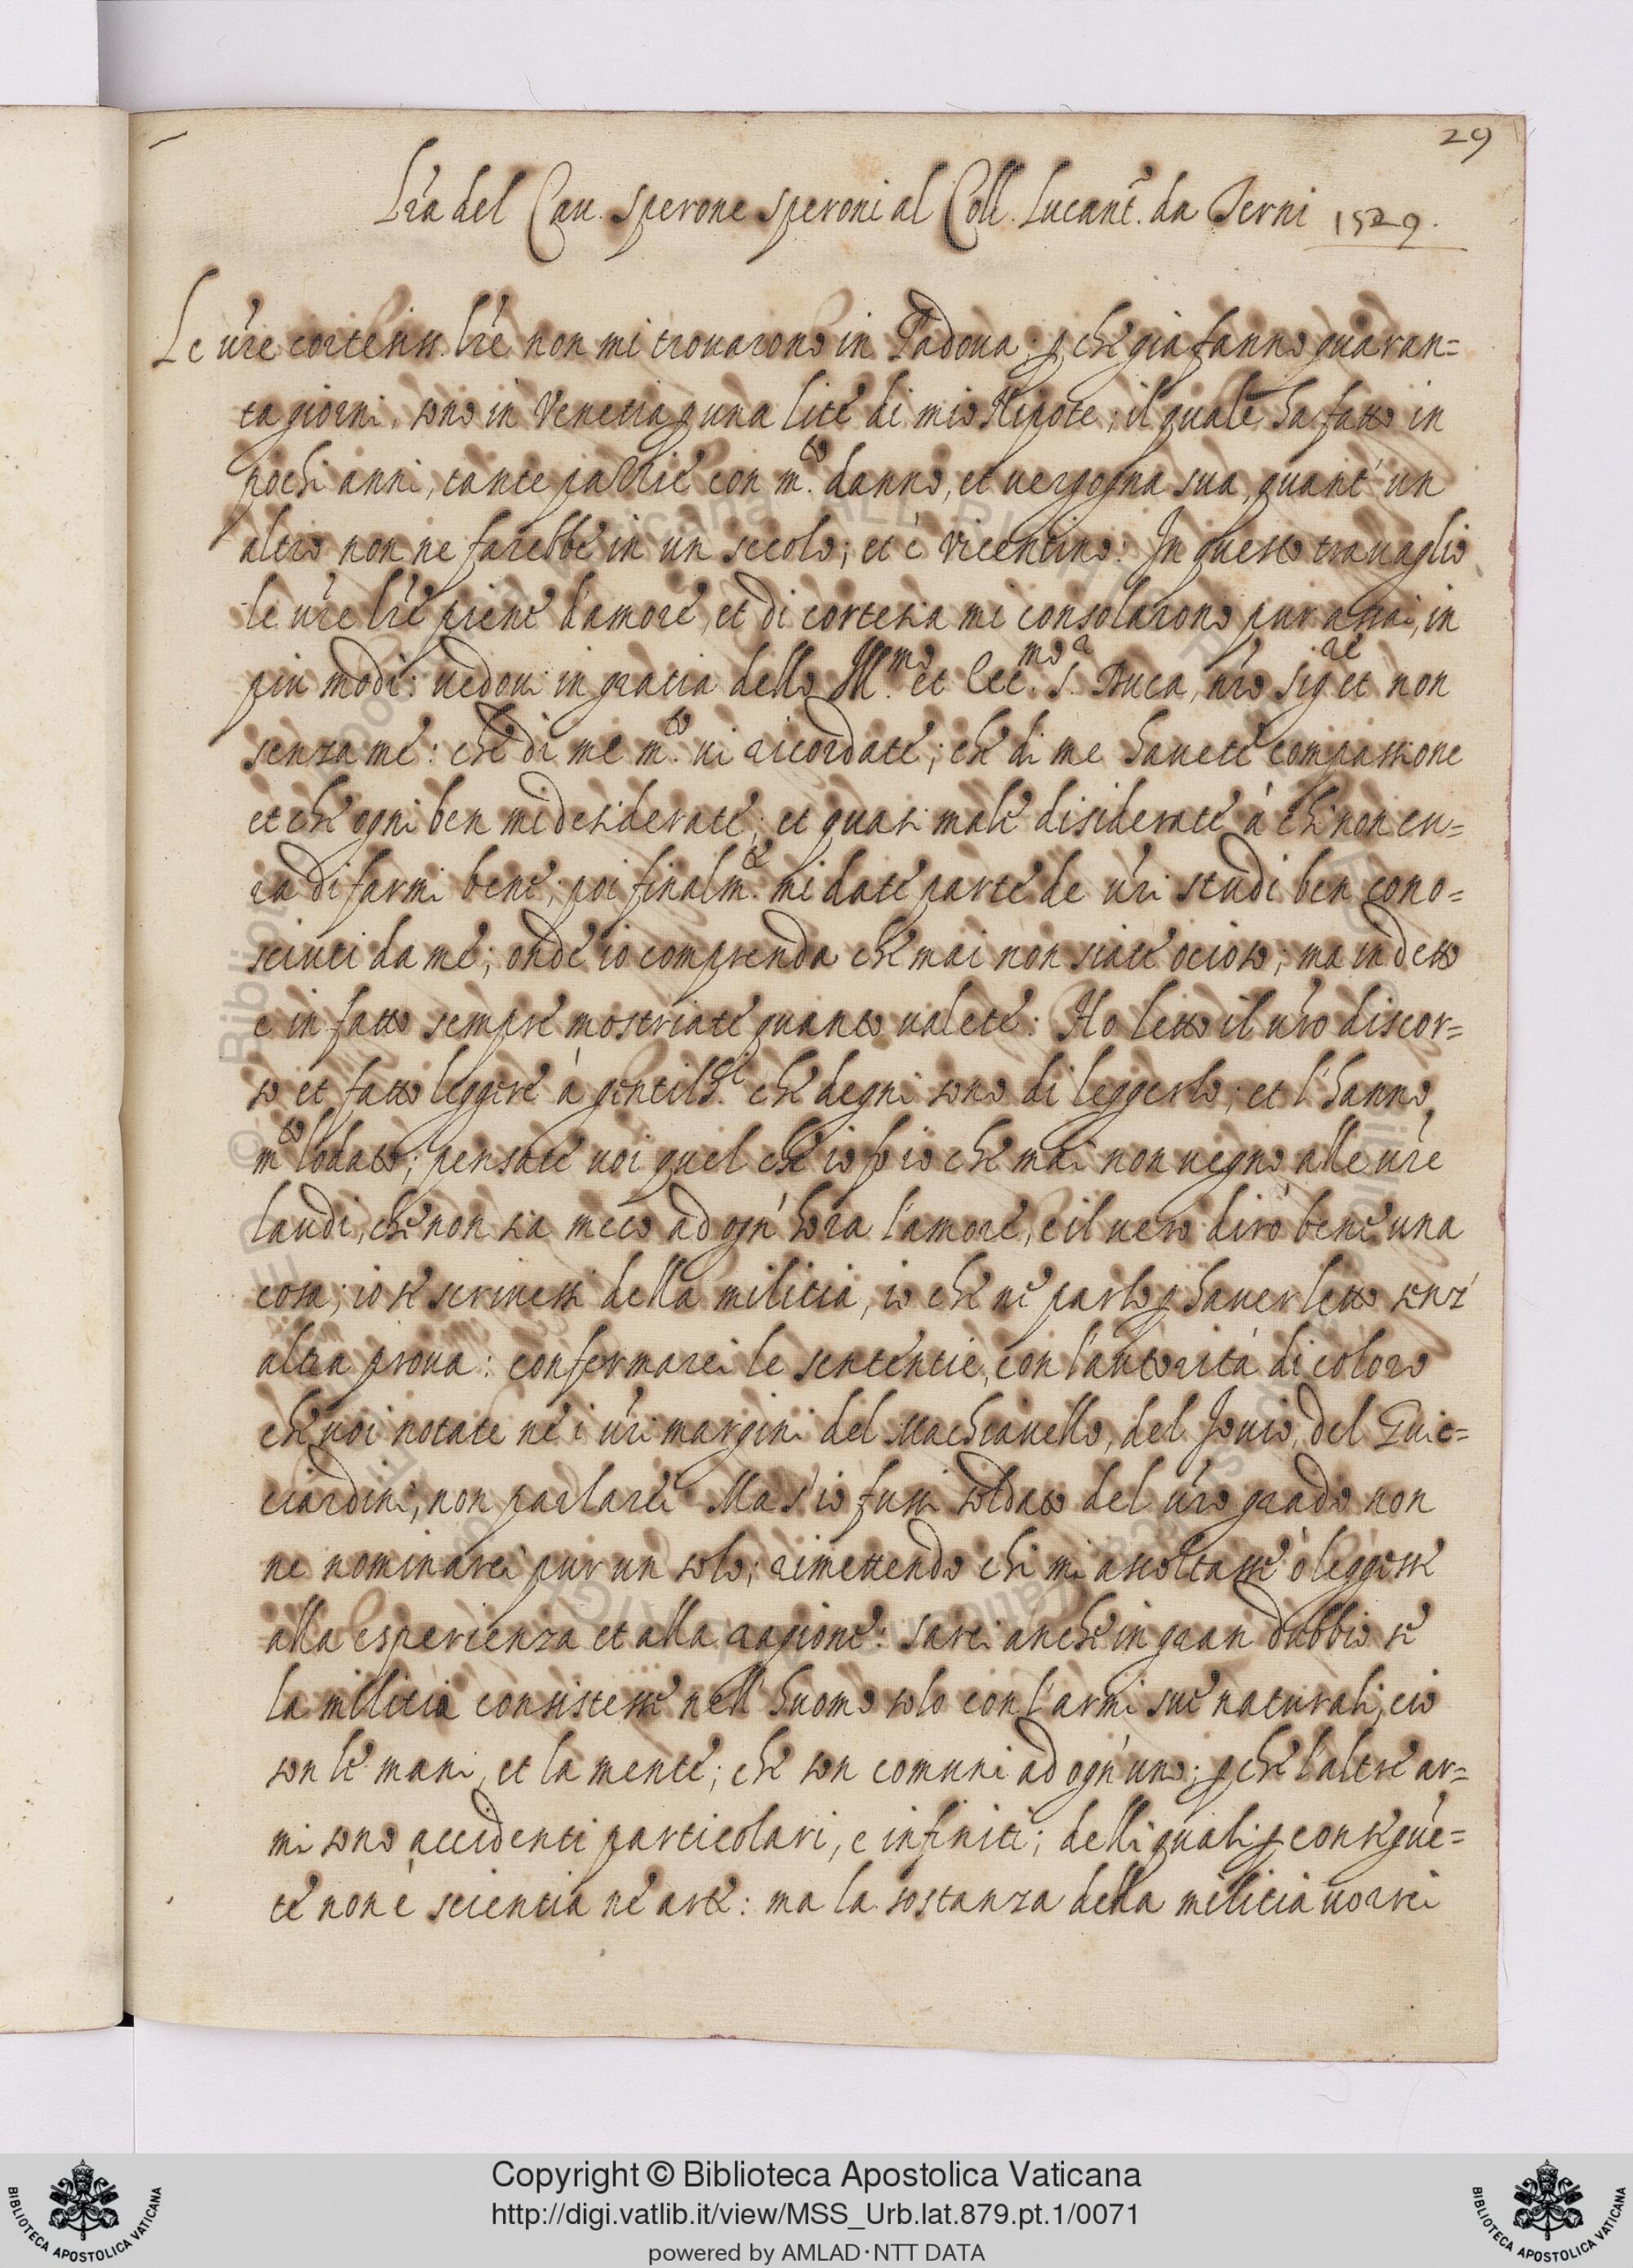 29
Lr̃a del Cau. Sperone Speroni al Coll. Lucant.º da Terni 1529.
Le ur̃e cortesiss. lr̃e non mi trouarono in Padoua; ꝑche già fanno quaran=
ta giorni, sono in Venetia ꝑ una lite di mio Nipote; il quale ha fatto in
pochi anni, tante pazzie con m.to danno, et uergogna sua, quant' un
altro non ne farebbe in un secolo; et è Vicentino: In questo trauaglio
le ur̃e lr̃e piene d'amore, et di cortesia mi consolarono pur assai, in
piu modi: uedoui in gratia dello Ill.mo et Ecc.mo S.r Duca, nr̃o sig.re et non
senza me: che di me m.to ui ricordate; che di me hauete compassione
et che ogni ben mi desiderate; et quasi male disiderate à chi non cu=
ra di farmi bene; poi finalm.te mi date parte de ur̃i studi ben cono=
sciuti da me; onde io comprenda che mai non siate ocioso; ma in detto
e in fatto sempre mostriate quanto ualete: Ho letto il ur̃o discor=
so et fatto leggere à gentilh.i che degni sono di leggerlo; et l'hanno
m.to lodato; pensate uoi quel che io fo io che mai non uegno alle ur̃e
laudi, che non sia meco ad ogn' hora l'amore, e il uero dirò bene una
cosa; io se scriuessi della militia, io che ne parlo ꝑ hauer letto senz'
altra proua: confermarei le sententie, con l'autorità di coloro
che uoi notate ne i ur̃i margini del Machiauello, del Jouio, del Guic=
ciardini, non parlarei Ma s'io fussi soldato del ur̃o grado non
ne nominarei pur un solo; rimettendo chi mi ascoltasse ò leggesse
alla esperienza et alla ragione: sarei anche in gran dubbio se
la militia consistesse nell' huomo solo con l'armi sue naturali; cio
son le mani, et la mente; che son comuni ad ogn'uno; ꝑche l'altre ar=
mi sono accidenti particolari, e infiniti; delli quali ꝑ consegue͂=
te non è scientia nè arte: ma la sostanza della militia uorrei
Copyright © Biblioteca Apostolica Vaticana
http://digi.vatlib.it/view/MSS_Urb.lat.879.pt.1/0071
powered by AMLAD·NTT DATA
BIBLIOTECA APOSTOLICA VATICANA
BIBLIOTECA APOSTOLICA VATICANA